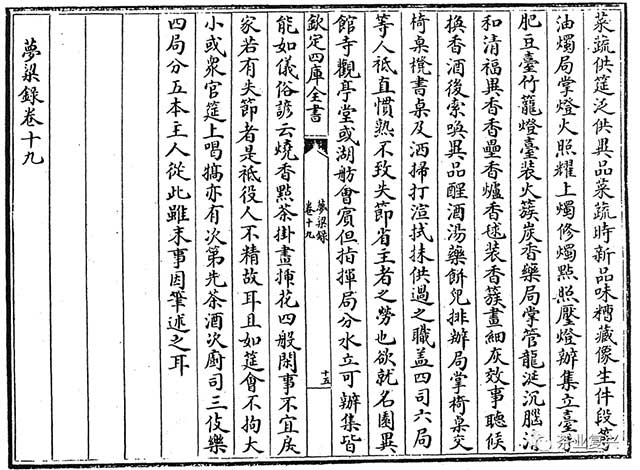 菜蔬供筵泛供異品菜蔬時新品味糟藏像生件段等
油燭局掌燈火照耀上燭修燭點照壓燈辦集立臺手
肥豆臺竹籠燈臺裝火簇炭香藥局掌管龍涎沉腦清
和清福異香香壘香爐香毬裝香簇畫細灰效事聽候
換香酒後索喚異品醒酒湯藥餅兒排辦局掌椅桌交
椅桌櫈書桌及洒掃打渲拭抹供過之職盖四司六局
等人祗直慣熟不致失節省主者之勞也欲就名園異
館寺觀亭堂或湖舫會賓但指揮局分水立可辦集皆
欽定四庫全書
夢粱録
卷十九
十五
能如儀俗諺云燒香點茶掛畫揷花四般閑事不宜戾
家若有失節者是祗役人不精故耳且如筵會不拘大
小或衆官筵上喝犒亦有次第先茶酒次廚司三伎樂
四局分五本主人從此雖末事因筆述之耳
夢粱錄卷十九
茶业复兴